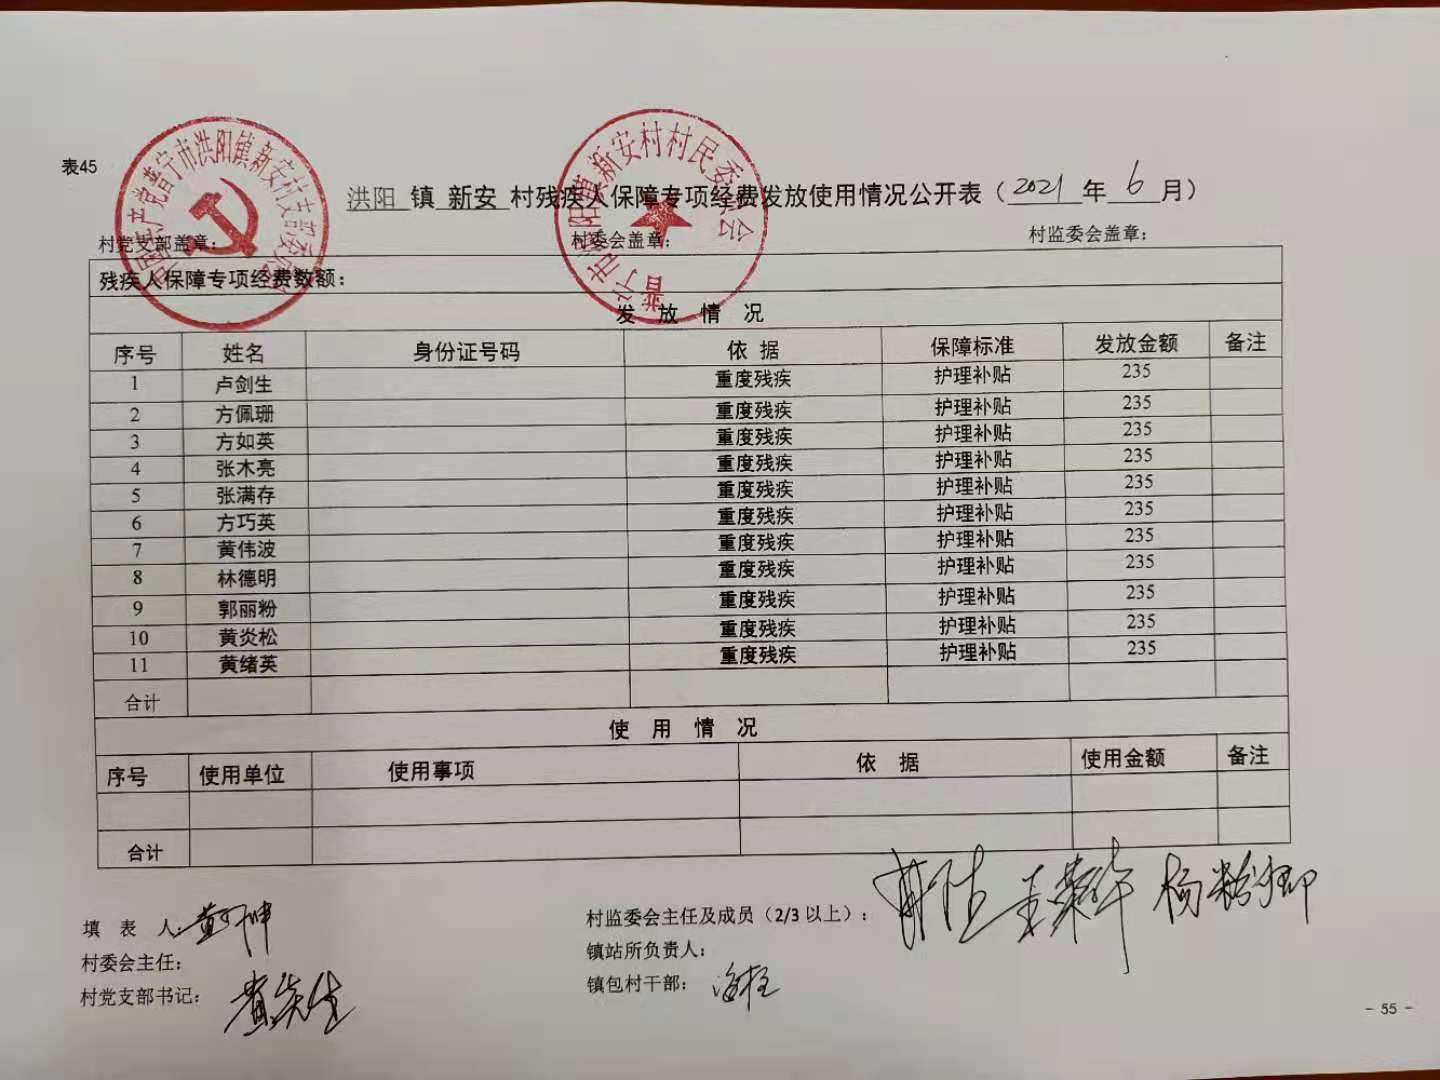 表45
洪阳 镇 新安 村残疾人保障专项经费发放使用情况公开表（2021 年 6 月）
村党支部盖章： 村委会盖章： 村监委会盖章：
残疾人保障专项经费数额：
发 放 情 况
序号 姓名 身份证号码 依 据 保障标准 发放金额 备注
1 卢剑生 重度残疾 护理补贴 235
2 方佩珊 重度残疾 护理补贴 235
3 方如英 重度残疾 护理补贴 235
4 张木亮 重度残疾 护理补贴 235
5 张满存 重度残疾 护理补贴 235
6 方巧英 重度残疾 护理补贴 235
7 黄伟波 重度残疾 护理补贴 235
8 林德明 重度残疾 护理补贴 235
9 郭丽粉 重度残疾 护理补贴 235
10 黄炎松 重度残疾 护理补贴 235
11 黄绪英 重度残疾 护理补贴 235
合计
使 用 情 况
序号 使用单位 使用事项 依 据 使用金额 备注
合计
填 表 人：
村委会主任：
村党支部书记：
村监委会主任及成员（2/3 以上）： 杨粉卿
镇站所负责人：
镇包村干部：
- 55 -
中国共产党普宁市洪阳镇新安村支部委员会
普宁市洪阳镇新安村村民委员会